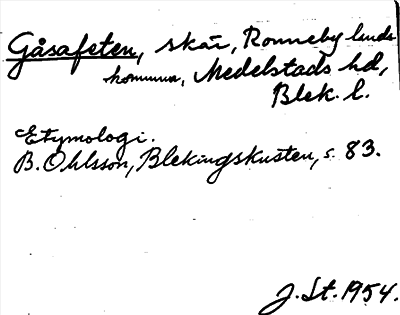 Gåsafeten, skär, Ronneby lands
kommun, Medelstads hd,
Blek. l.
Etymologi.
B. Ohlsson, Blekingskusten, s. 83.
J. St. 1954.